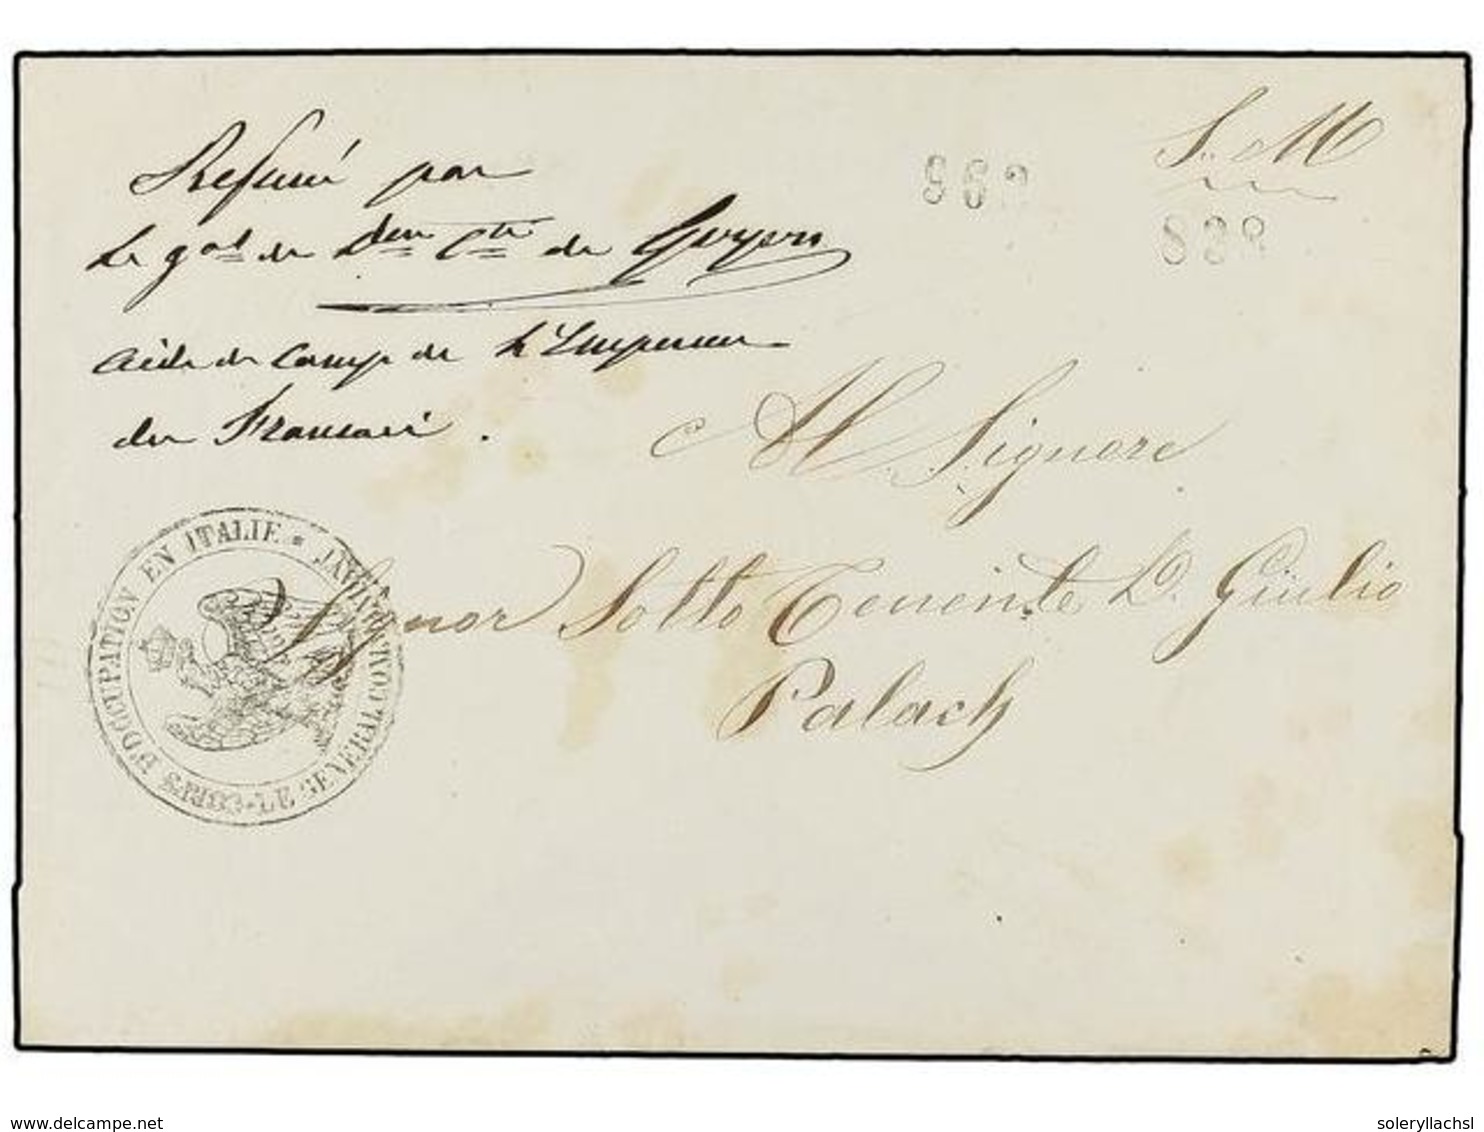 Refusé par
Le gal de Don Cte de Goyon
aide de Camp de L'Empereur
des Français.
S. M
868
838
Al Signore
Signor Sotto Tenente D. Giulio
Palach
CORPS D'OCCUPATION EN ITALIE * LE GENERAL COMMANDANT
delcampe.net
soleryllachsl